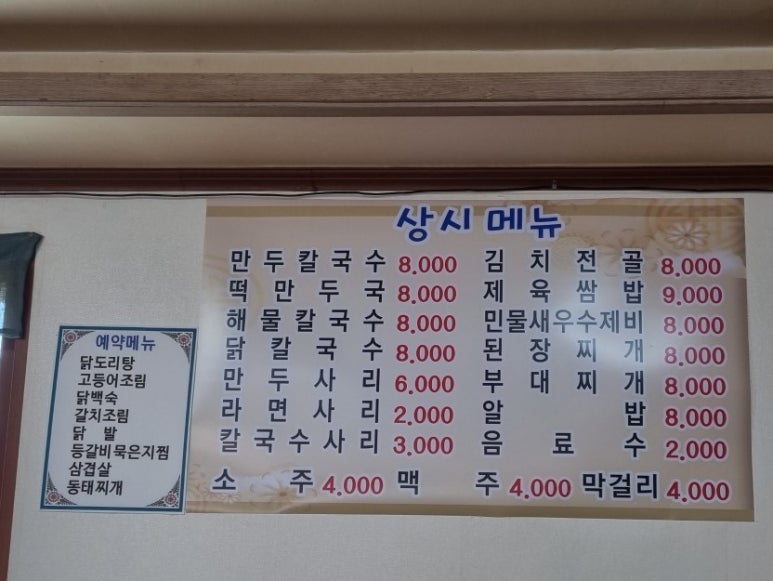 상시 메뉴
만두칼국수 8.000 김치전골 8.000
떡만두국 8.000 제육쌈밥 9.000
해물칼국수 8.000 민물새우수제비 8.000
닭칼국수 8.000 된장찌개 8.000
만두사리 6.000 부대찌개 8.000
라면사리 2.000 알밥 8.000
칼국수사리 3.000 음료수 2.000
소주 4.000 맥주 4.000 막걸리 4.000
예약메뉴
닭도리탕
고등어조림
닭백숙
갈치조림
닭 발
등갈비묵은지찜
삼겹살
동태찌개